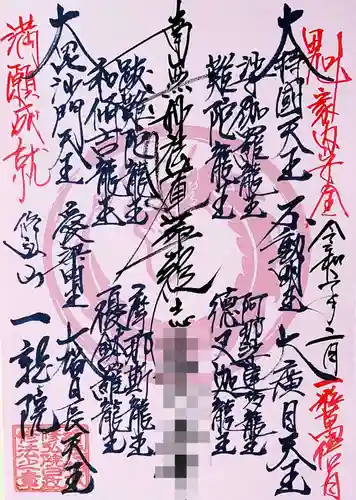 家内安全
令和六年二月
一粒万倍日
大持國天王
不動明王
大廣目天王
沙伽羅龍王
阿那婆達龍王
難陀龍王
徳叉伽龍王
南無妙法蓮華経
跋難陀龍王
摩那斯龍王
和修吉龍王
優鉢羅龍王
大毘沙門天王
愛染明王
大増長天王
満願成就
一龍院